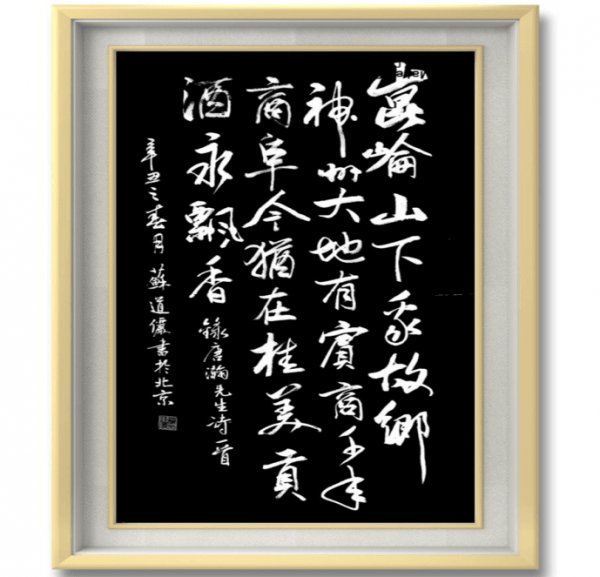 崑崙山下我故鄉
神州大地有賓商千年
商阜今猶在桂美貢
酒永飄香
錄唐瀚先生诗一首
辛丑之春月 蘇道書於北京